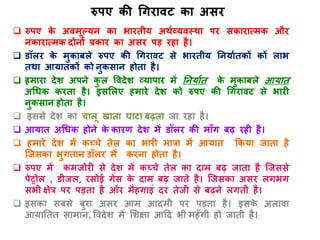 रुपए की गिरावट का असर
रुपए के अवमूल्यन का भारतीय अर्थव्यवस्था पर सकारात्मक और
नकारात्मक दोनों प्रकार का असर पड़ रहा है।
डॉलर के मुकाबले रुपए की गिरावट से भारतीय निर्यातकों कों लाभ
तथा आयातकों को नुकसान होता है।
हमारा देश अपने कुल विदेश व्यापार में निर्यात के मुकाबले आयात
अधिक करता है। इसलिए हमारे देश को रुपए की गिरावट से भारी
नुकसान होता है।
इससे देश का चालू खाता घाटा बढ़ता जा रहा है।
आयात अधिक होने के कारण देश में डॉलर की माँग बढ़ रही है।
हमारे देश में कच्चे तेल का भारी मात्रा में आयात किया जाता है
जिसका भुगतान डॉलर में करना होता है।
रुपए में कमजोरी से देश में कच्चे तेल का दाम बढ़ जाता है जिससे
पेट्रोल , डीजल, रसोई गेस के दाम बढ़ जाते है। जिसका असर लगभग
सभी क्षेत्र पर पड़ता है और मँहगाई दर तेजी से बढ़ने लगती है।
इसका सबसे बुरा असर आम आदमी पर पड़ता है। इसके अलावा
आयातित सामान, विदेश में शिक्षा आदि भी महँगी हो जाती है।